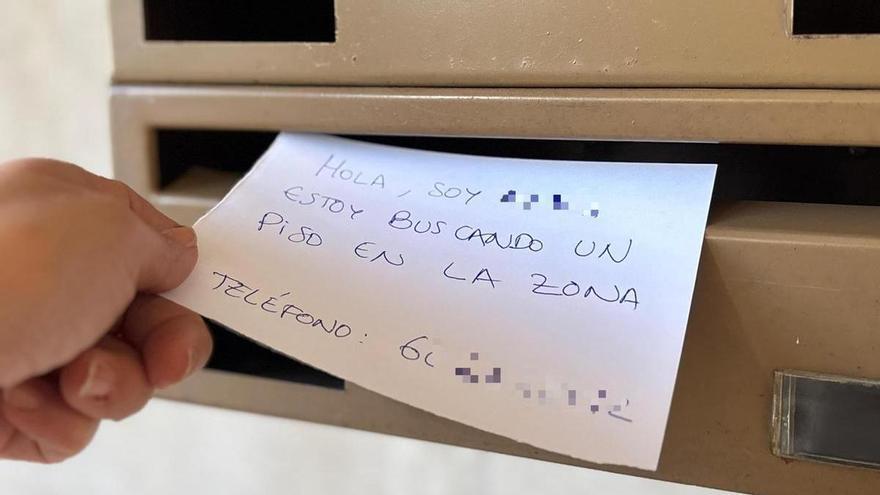 HOLA, SOY
ESTOY BUSCANDO UN
PISO EN LA ZONA
TELÉFONO: 6